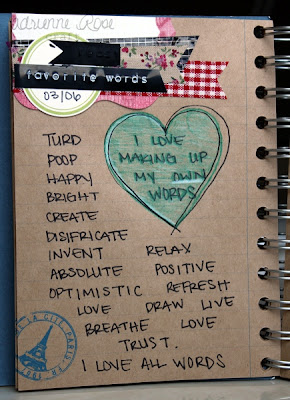 Adrienne Rose
favorite words
03/06
TURD
POOP
HAPPY
BRIGHT
CREATE
DISIFRICATE
INVENT RELAX
ABSOLUTE POSITIVE
OPTIMISTIC REFRESH
LOVE DRAW LIVE
BREATHE LOVE
TRUST.
I LOVE ALL WORDS
I LOVE
MAKING UP
MY OWN
WORDS
DE LA CITE PARIS FR